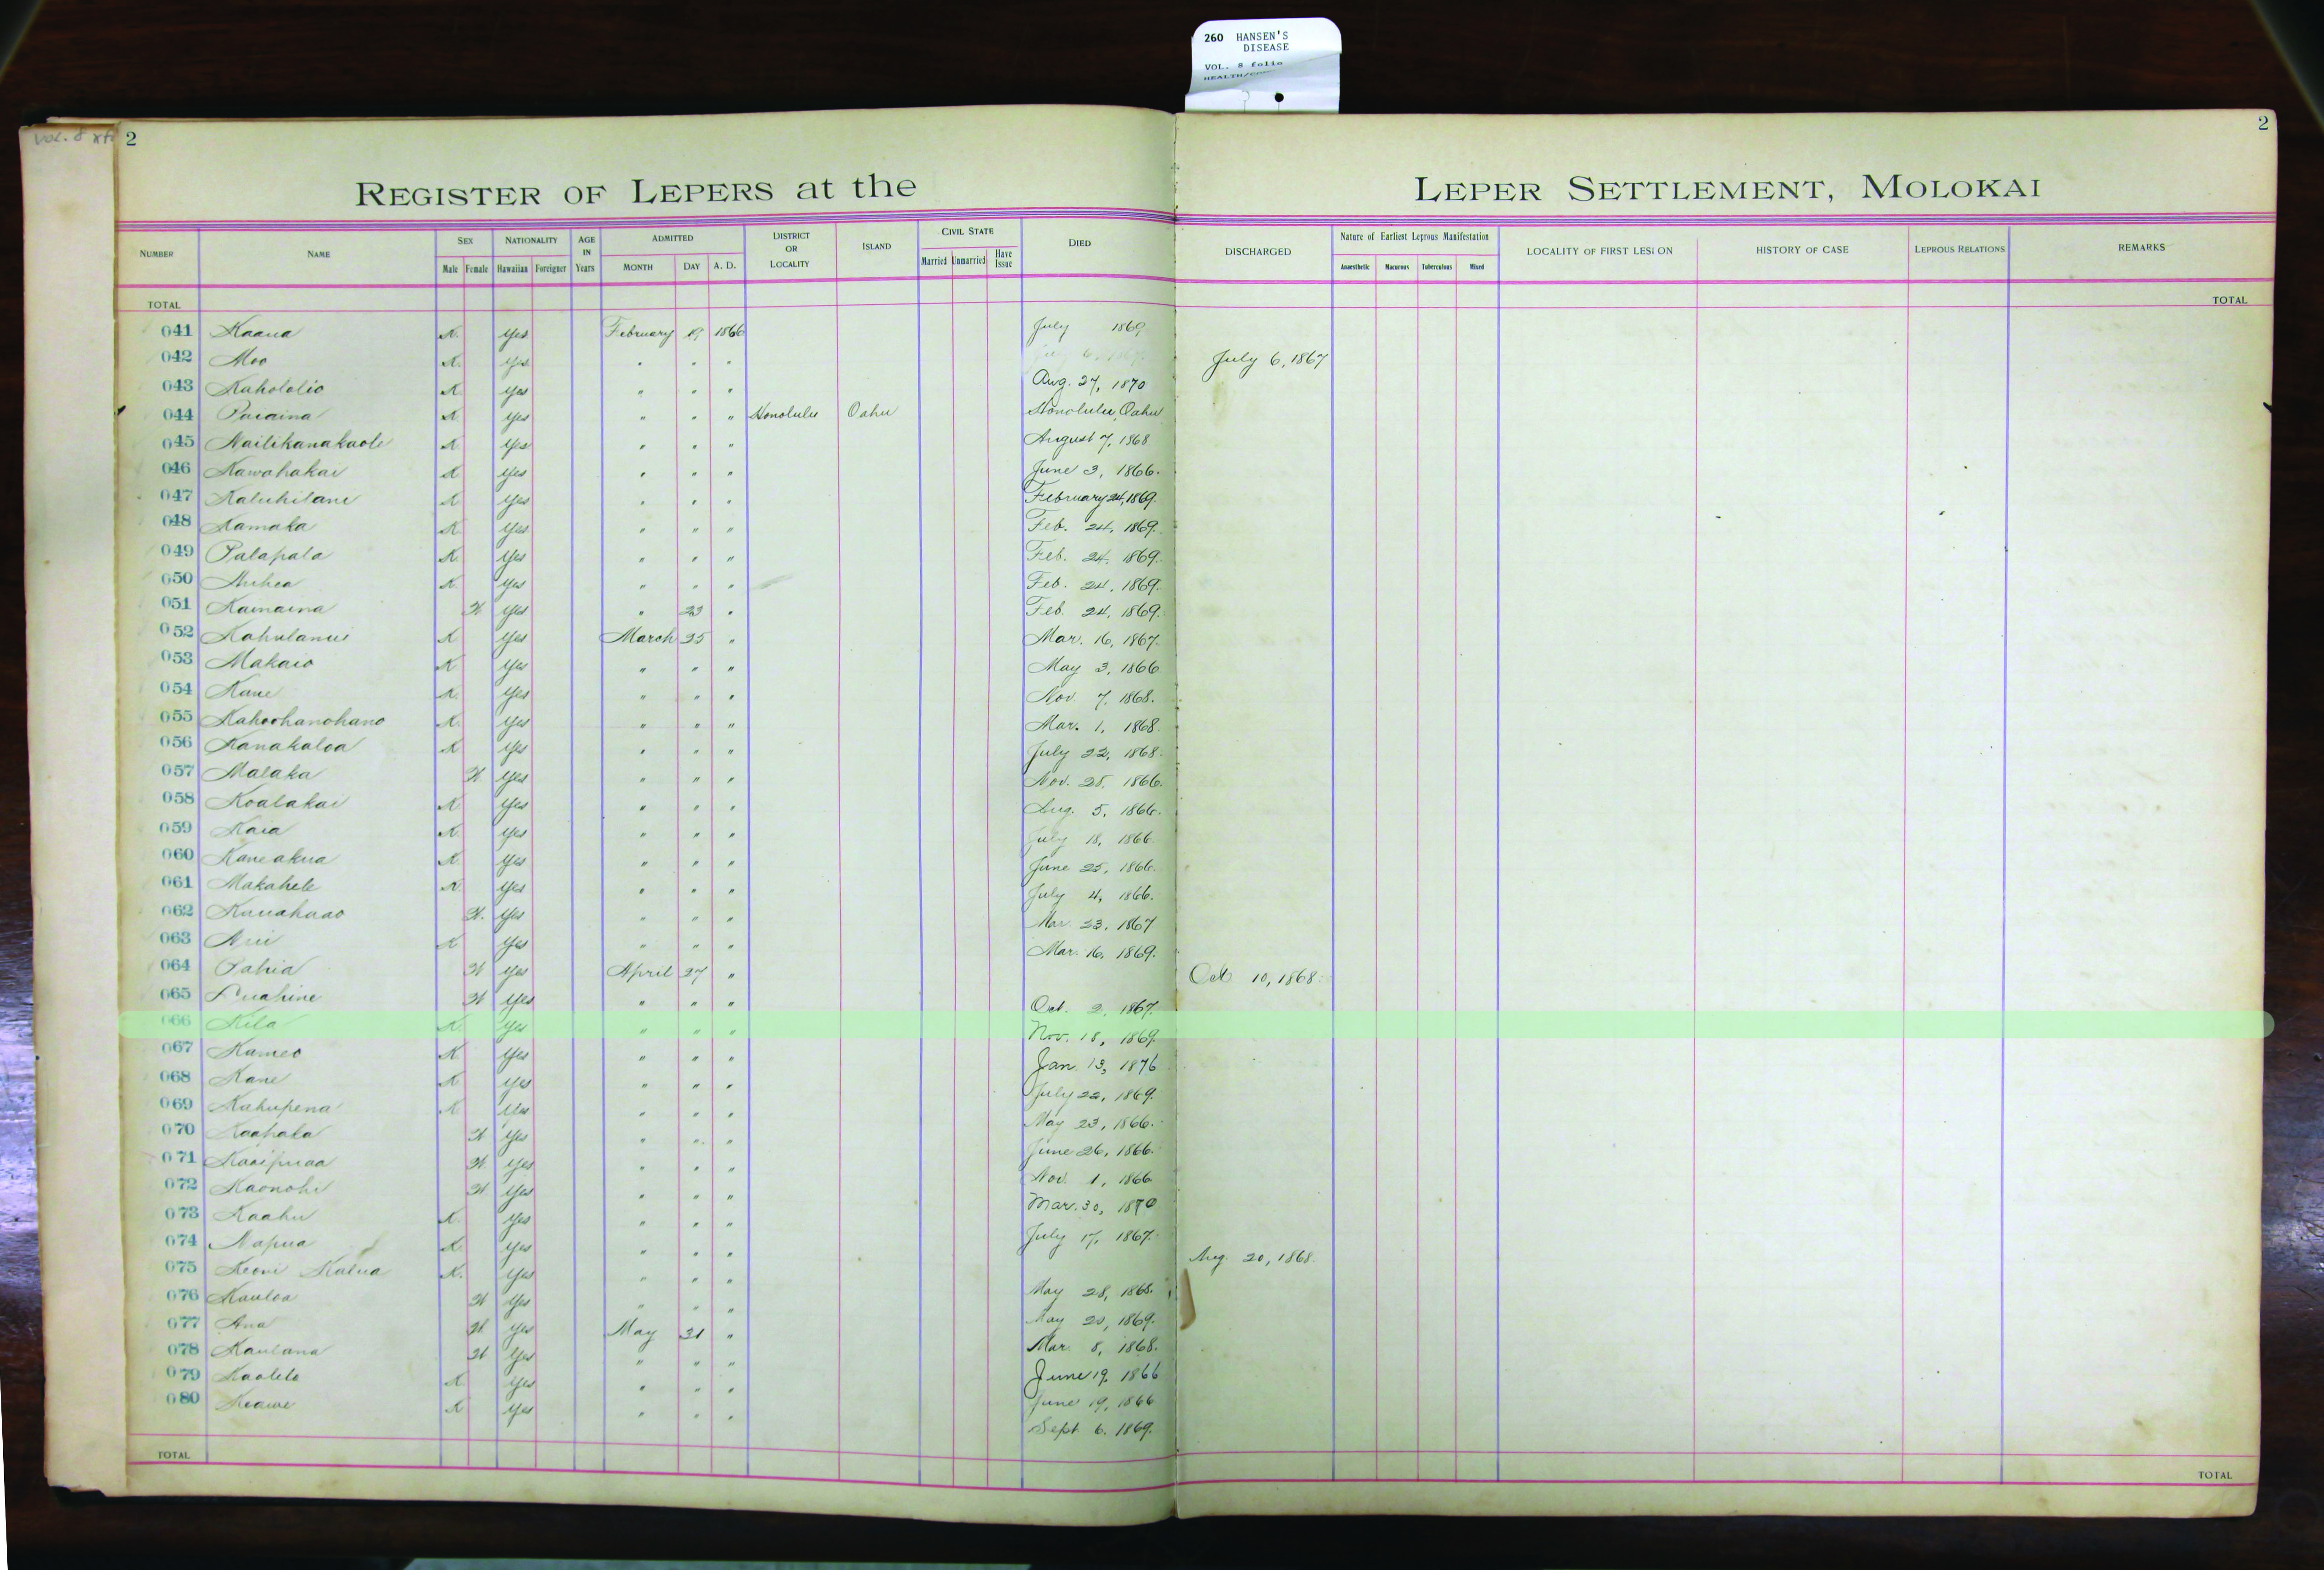 260 HANSEN'S
DISEASE
VOL. 8 folio
Vol. 8
2
2
REGISTER OF LEPERS at the LEPER SETTLEMENT, MOLOKAI
NUMBER NAME SEX NATIONALITY AGE IN Years ADMITTED DISTRICT OR LOCALITY ISLAND CIVIL STATE DIED DISCHARGED Nature of Earliest Leprous Manifestation LOCALITY OF FIRST LESION HISTORY OF CASE LEPROUS RELATIONS REMARKS
Male Female Hawaiian Foreigner MONTH DAY A. D. Married Unmarried Have Issue Anaesthetic Macurous Tuberculous Mixed
TOTAL TOTAL
041 Kaaua K. yes February 19 1866 July 1869
042 Moo K. yes " " " July 6, 1867
043 Kahololio K yes " " " Aug. 27, 1870
044 Paiaina K yes " " " Honolulu Oahu Honolulu, Oahu
045 Nailikanakaole K yes " " " August 7, 1868
046 Kawahakai K yes " " " June 3, 1866.
047 Kaluhilani K yes " " " February 24, 1869.
048 Kamaka K yes " " " Feb. 24, 1869.
049 Palapala K. yes " " " Feb. 24, 1869.
050 K. yes " " " Feb. 24, 1869.
051 Kamaina W yes " 23 " Feb. 24, 1869.
052 K yes March 25 " Mar. 16, 1867.
053 Makaio K yes " " " May 3, 1866
054 Kane K. yes " " " Nov. 7, 1868.
055 Kahoohanohano K. yes " " " Mar. 1, 1868.
056 Kanakaloa K yes " " " July 22, 1868.
057 Malaka W yes " " " Nov. 28, 1866.
058 Koalakai K yes " " " Aug. 5, 1866.
059 Kaia K. yes " " " July 18, 1866.
060 Kaneakua K yes " " " June 25, 1866.
061 Makahele K yes " " " July 4, 1866.
062 Kauahaao W. yes " " " Mar. 23, 1867
063 K yes " " " Mar. 16, 1869.
064 Pahia W yes April 27 " Oct 10, 1868.
065 Luahine W yes " " " Oct. 2, 1867.
066 Kila K. yes " " " Nov. 18, 1869.
067 Kameo K yes " " " Jan. 13, 1876
068 Kane K yes " " " July 22, 1869.
069 Kahupena K yes " " " May 23, 1866.
070 Kaahala W yes " " " June 26, 1866.
071 Kaaipuaa W. yes " " " Nov. 1, 1866
072 Kaonohi W yes " " " Mar. 30, 1870
073 Kaahu K. yes " " " July 17, 1867.
074 Napua K. yes " " " Aug. 20, 1868.
075 Keoni Kalua K. yes " " " May 28, 1868.
076 Kauloa W yes " " " May 20, 1869.
077 Ana W. yes May 31 " Mar. 8, 1868.
078 Kaulana W yes " " " June 19, 1866
079 Kaolelo K yes " " " June 19, 1866
080 Keawe K yes " " " Sept. 6, 1869.
TOTAL TOTAL